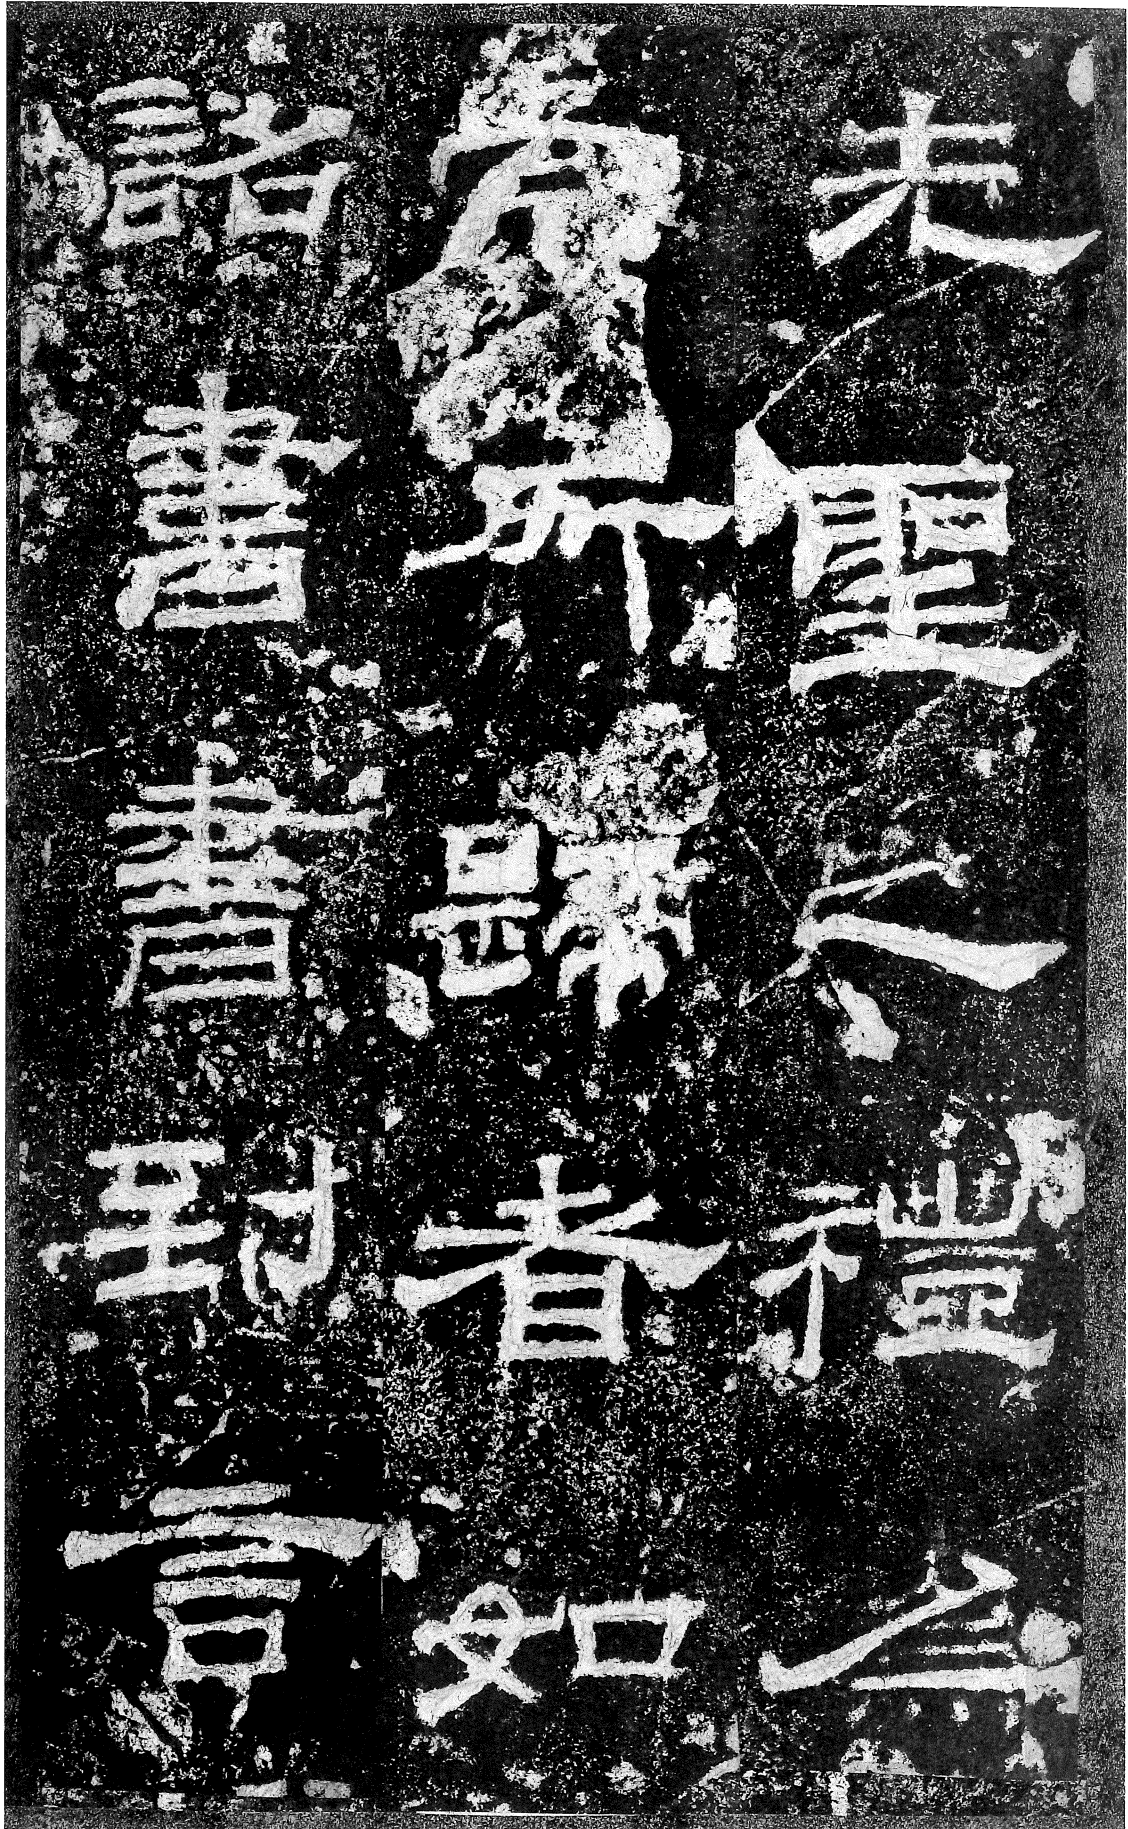 先聖之禮為
宗所歸者如
詔書書到言